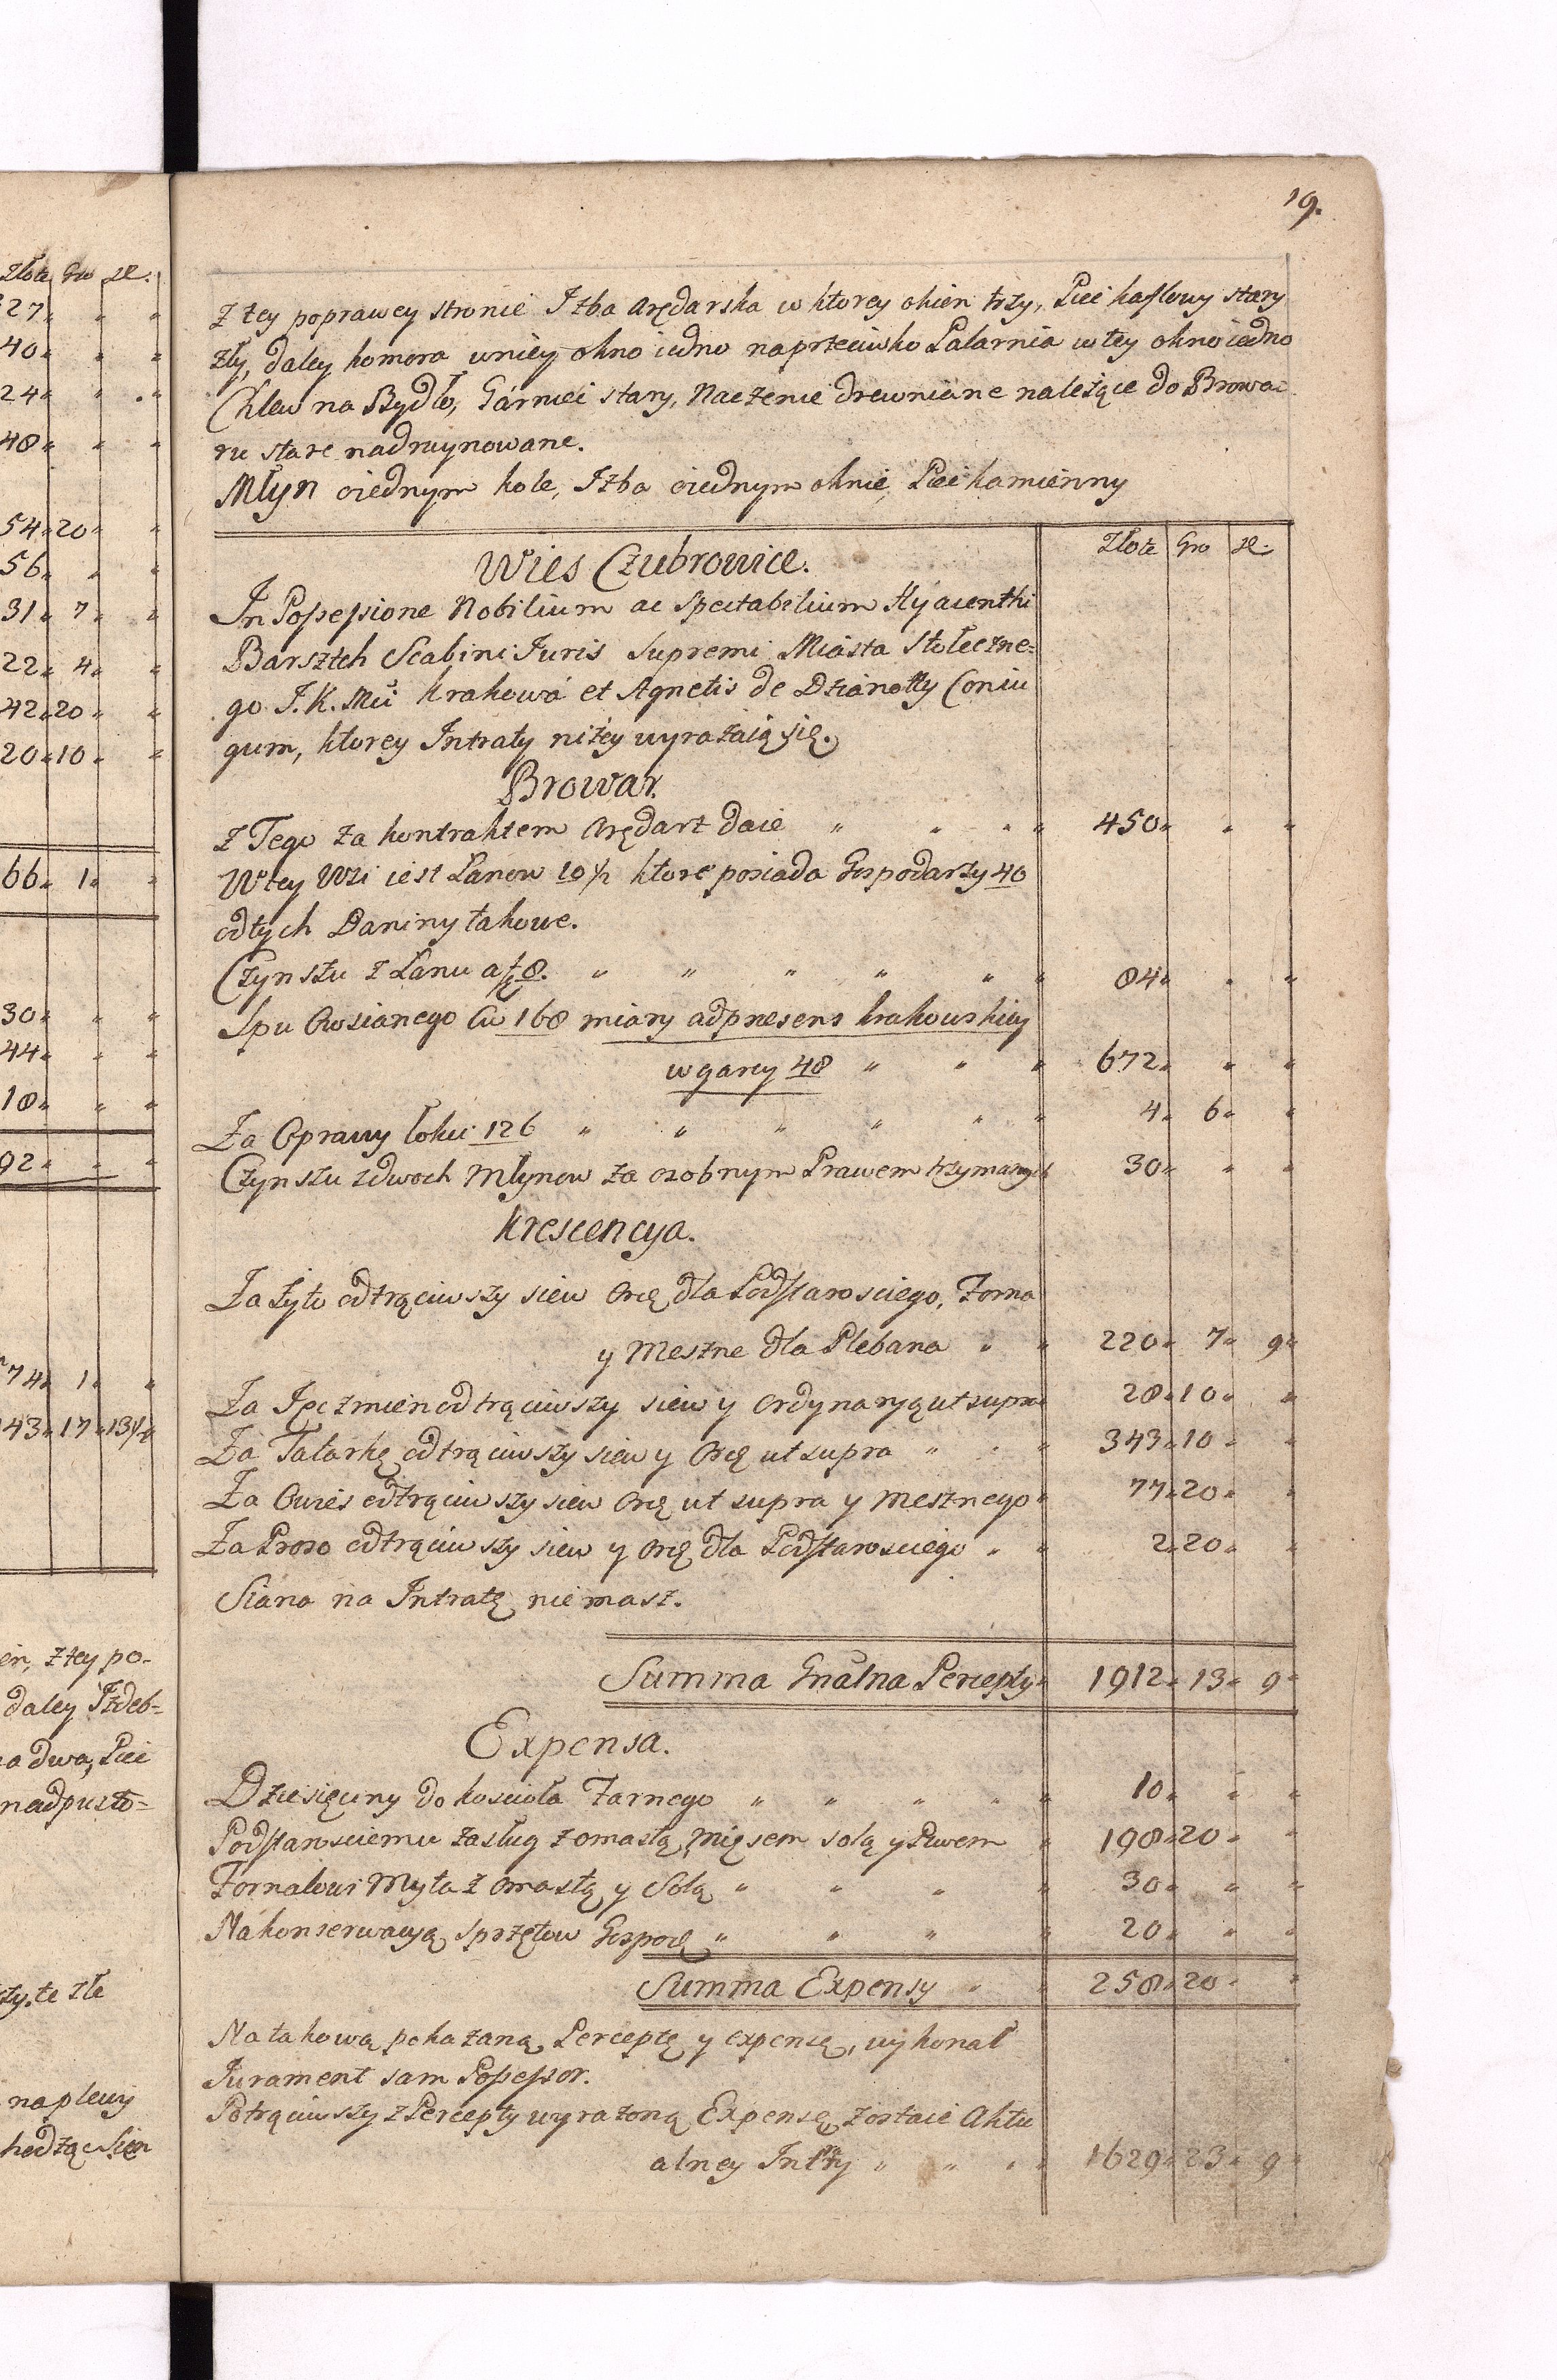 19.
złote gro sz:
27
40
24
48
54 20
56
31 7
22 4
42 20
20 10
66 1
30
44
18
92
74 1
43 17 13½
z tey po-
daley Izdeb=
a dwa, Piec
nadpusto=
szy. te złe
na plewy
hodząc Sień
z tey poprawey stronie Izba Arędarska w ktorey okien trzy, Piec kaflowy stary
zły, daley komora wniey okno iedno naprzeciwko Palarnia w tey okno iedno
Chlew na Bydło, Garniec stary, Naczenie drewniane należące do Browa=
ru stare nadruynowane.
Młyn oiednym kole, Izba oiednym oknie, Piec kamienny
Złote Gro sz:
Wies Czubrowice.
In Possessione Nobilium ac Spectabilium Hyacenthi
Barsztch Scabini Iuris Supremi Miasta Stołeczne=
go J.K.Mci Krakowa et Agnetis de Dzianotty Coniu
gum, ktorey Intraty niżey wyrażaią się.
Browar.
z Tego za kontraktem Arędarz daie " " " " 450 " "
W tey Wsi iest Łanow 10½ ktore posiada Gospodarzy 40
od tych Daniny takowe.
Czynszu z Łanu a fl 8. " " " " " " 84 " "
Spu Owsianego Cw 168 miary adpresens krakowskiey
w garcy 48 " " " 672 " "
Za Oprawy łokci 126 " " " " " " 4 6 "
Czynszu zdwoch Młynow za osobnym Prawem trzymanych 30 " "
Krescencya.
Za Żyto odtrąciwszy siew Orę dla Podstarosciego, Forna
y Meszne dla Plebana " " 220 7 9
Za Jęczmien odtrąciwszy siew y Ordynaryą ut supra 28 10 "
Za Tatarkę odtrąciwszy siew y Orę ut supra " " " 343 10 "
Za Owies odtrąciwszy siew Orę ut supra y mesznego 77 20 "
Za Proso odtrąciwszy siew y Orę dla Podstarosciego " " 2 20 "
Siana na Intratę nie masz.
Summa Gnalna Percepty 1912 13 9
Expensa.
Dziesięciny do kościoła Farnego " " " " " 10 " "
Podstarosciemu zasług z omastą, mięsem solą y Piwem " 198 20 "
Fornalowi Myta z Omastą y Solą " " " " 30 " "
Na konserwacyą Sprzętow Gospor " " " " 20 " "
Summa Expensy " " 258 20 "
Na takową pokazaną Perceptę y expensę, wykonał
Jurament sam Possessor.
Potrąciwszy z Percepty wyrażoną Expensę zostaie Aktu
alney Intrty " " " " 1629 23 9